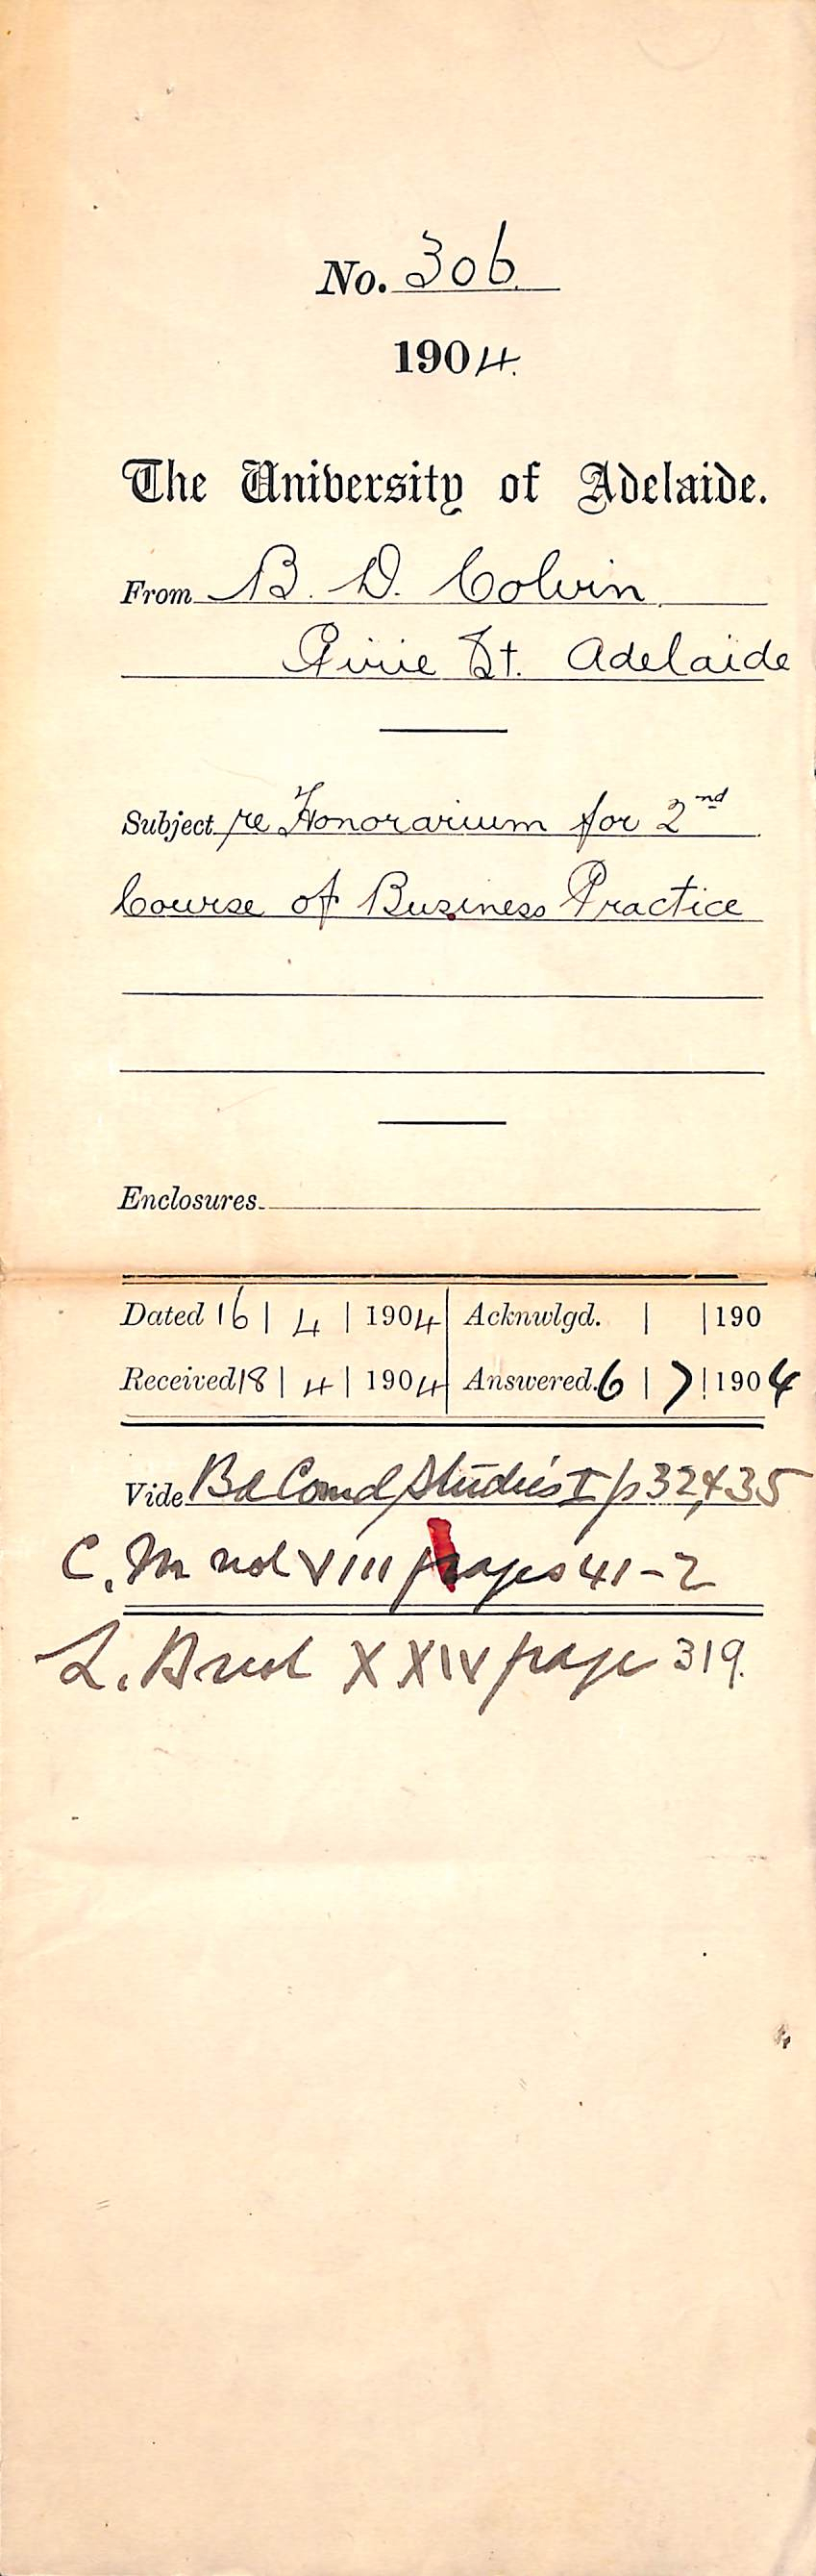 No. 306.
1904.
The University of Adelaide.
From B. D. Colvin.
Pirie St. Adelaide
Subject re Honorarium for 2nd
Course of Business Practice
Enclosures.
Dated 16 | 4 | 1904 Acknwlgd. | | 190
Received 18 | 4 | 1904 Answered. 6 | 7 | 1904
Vide Bd Comcl Studies I p 32, 435
C. M vol VIII pages 41-2
L. B vol XXIV page 319.